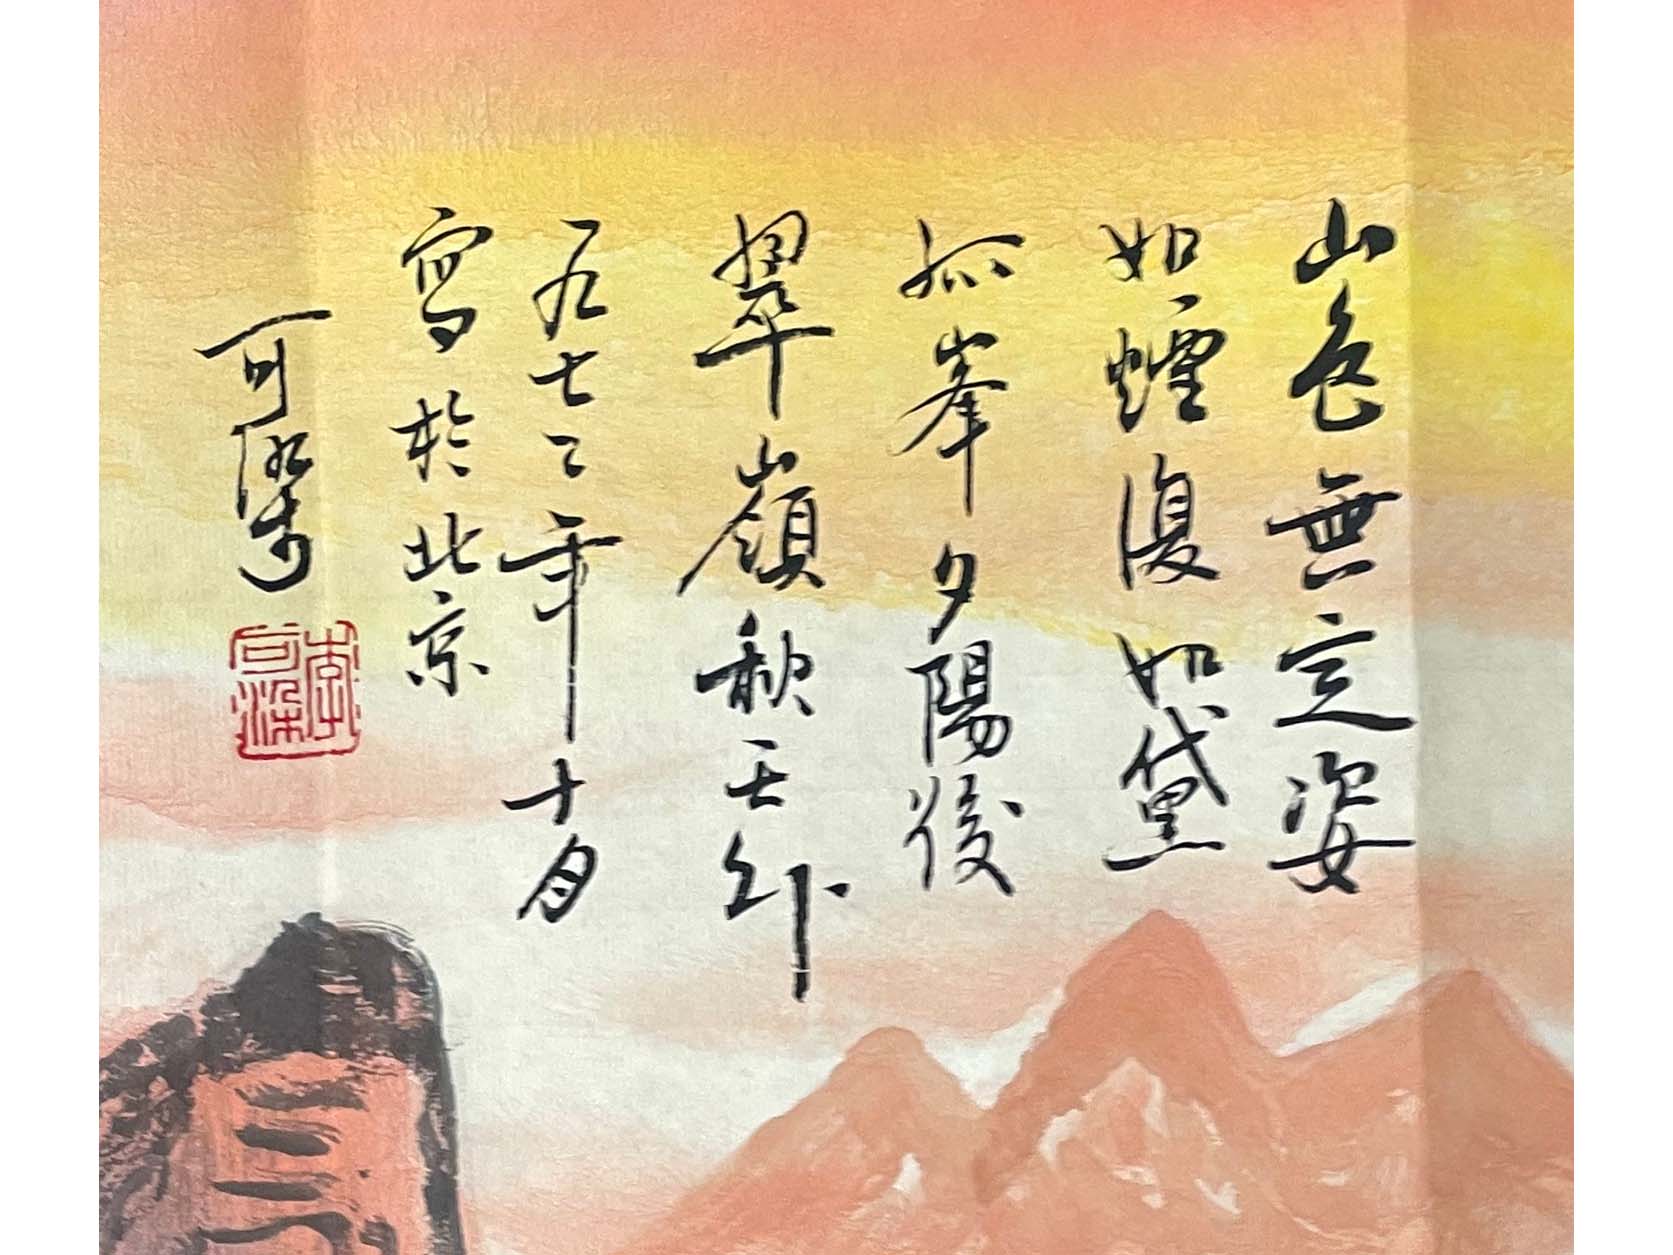 山色無定姿
如煙復如黛
孤峯夕陽後
翠嶺秋天外
一九七二年十月
寫於北京
可染
李可染